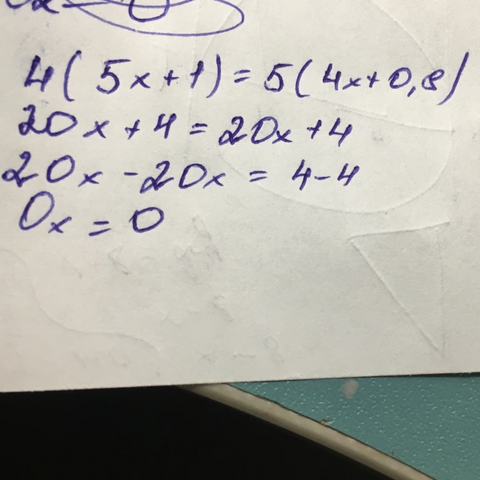 4( 5x+1)=5(4x+0,8)
20x+4=20x+4
20x-20x=4-4
0x=0